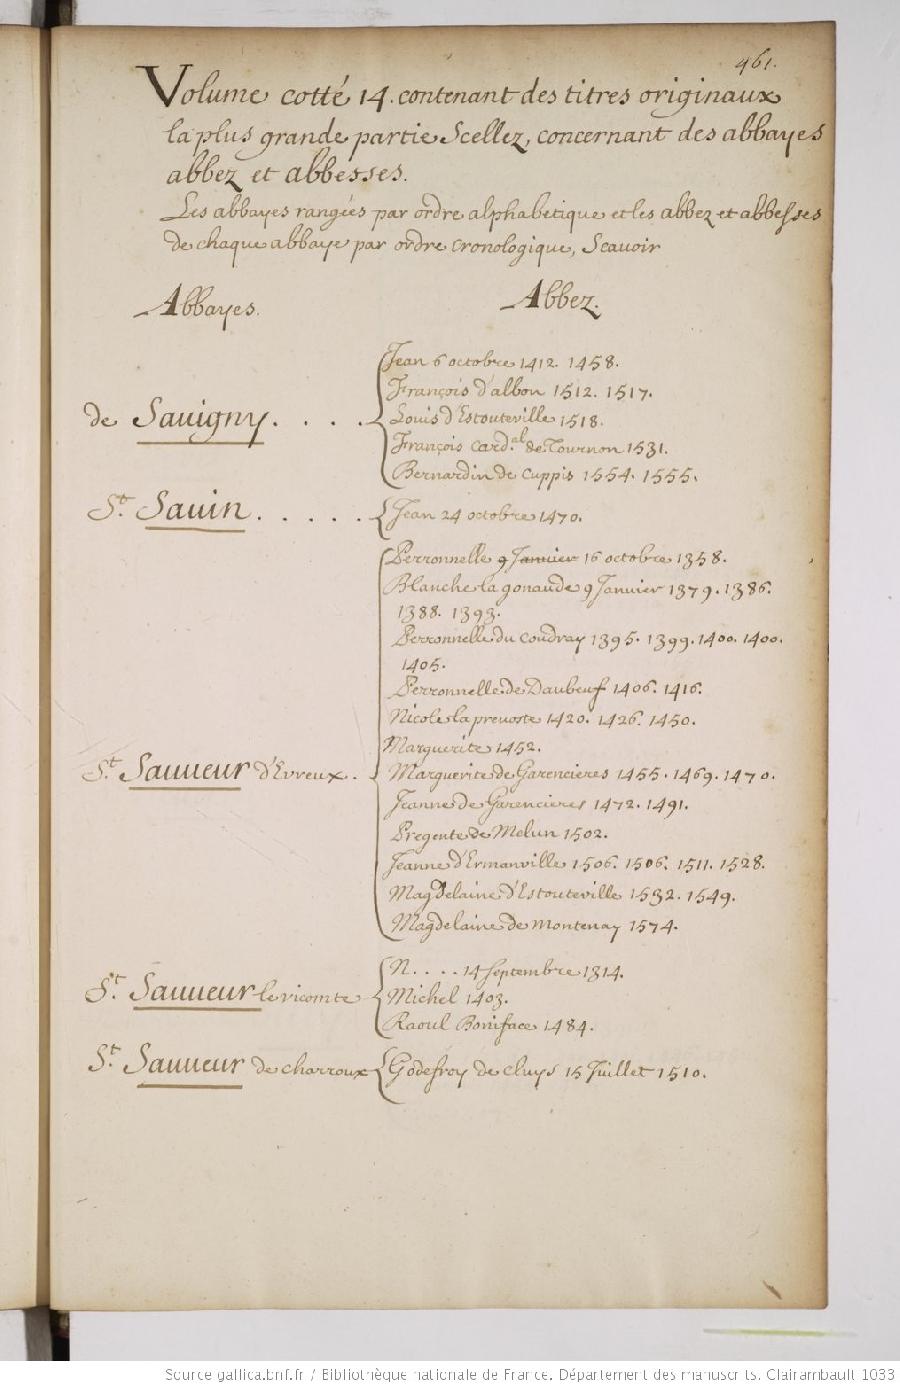 461.
Volume cotté 14. contenant des titres originaux
la plus grande partie Scellez, concernant des abbayes
abbez et abbesses.
Les abbayes rangées par ordre alphabetique et les abbez et abbesses
de chaque abbaye par ordre cronologique, Scavoir
Abbayes. Abbez.
Jean 6 octobre 1412. 1458.
François d'albon 1512. 1517.
de Savigny. . . . . Louis d'Estouteville 1518.
François Card.al de Tournon 1531.
Bernardin de Cuppis 1554. 1555.
St. Sauin . . . . . Jean 24 octobre 1470.
Perronnelle 9 Janvier 16 octobre 1358.
Blanche la gonaude 9 Janvier 1379. 1386.
1388. 1393.
Perronnelle du Coudray 1395. 1399. 1400. 1400.
1405.
Perronnelle de Daubeuf 1406. 1416.
Nicole la prevoste 1420. 1426. 1450.
Marguerite 1452.
St. Sauueur d'Evreux. . Marguerite de Garencieres 1455. 1469. 1470.
Jeanne de Garencieres 1472. 1491.
Pregente de Melun 1502.
Jeanne d'Ermanville 1506. 1506. 1511. 1528.
Magdelaine d'Estouteville 1532. 1549.
Magdelaine de Montenay 1574.
N. . . . . 14 septembre 1314.
St. Sauueur le vicomte Michel 1403.
Raoul Boniface 1484.
St. Sauueur de charroux Godefroy de Cluys 15 Juillet 1510.
Source gallica.bnf.fr / Bibliothèque nationale de France. Département des manuscrits. Clairambault 1033